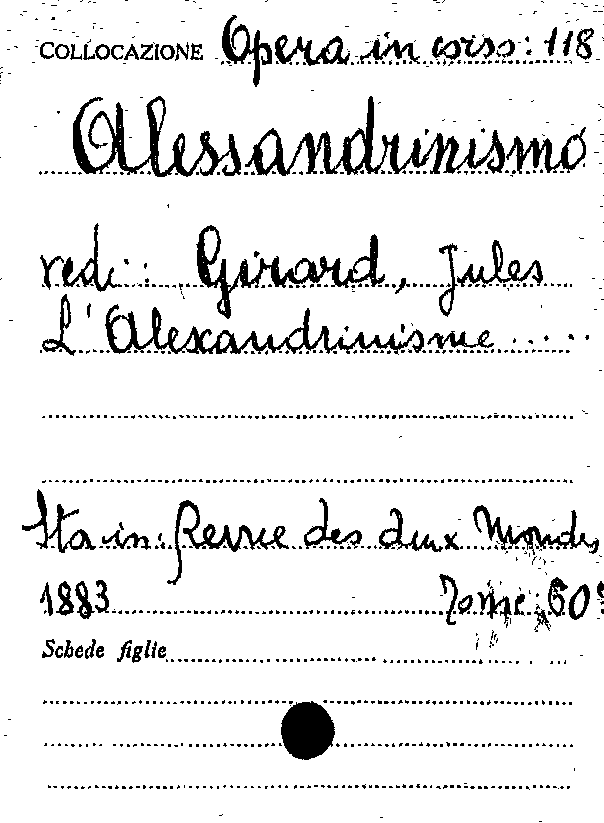 COLLOCAZIONE Opera in corso: 118
Alessandrinismo
vedi: Girard, Jules
L'Alexandrinisme .....
Sta in: Revue des deux Mondes,
1883 Tome 60º
Schede figlie